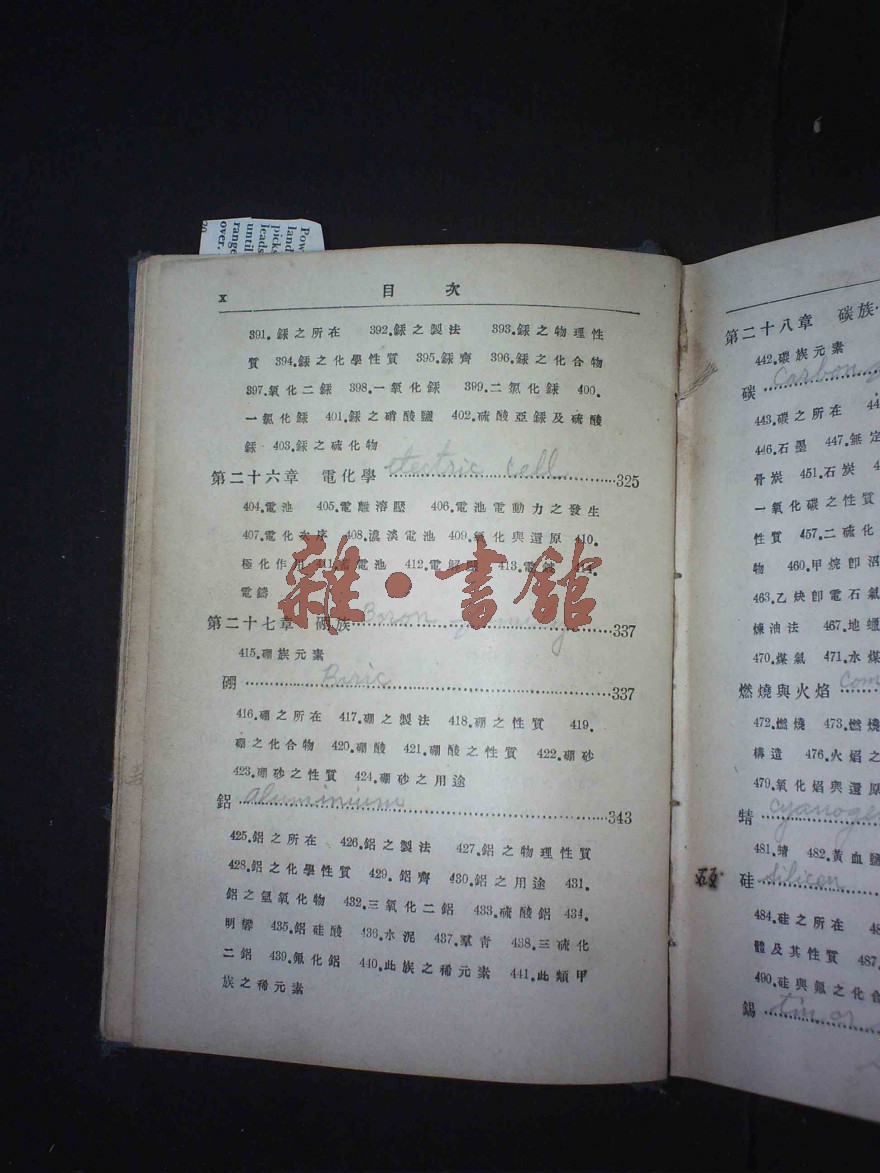 Pow
land
picks
leads
until
range
over.
x 目次
391.銾之所在 392.銾之製法 393.銾之物理性
質 394.銾之化學性質 395.銾齊 396.銾之化合物
397.氧化二銾 398.一氧化銾 399.二氯化銾 400.
一氯化銾 401.銾之硝酸鹽 402.硫酸亞銾及硫酸
銾 403.銾之硫化物
第二十六章 電化學 electric cell 325
404.電池 405.電離溶壓 406.電池電動力之發生
407.電化次序 408.濃淡電池 409.氧化與還原 410.
極化作用 411.蓄電池 412.電解壓 413.電鍍 414.
電鑄
雜·書館
第二十七章 硼族 Boron family 337
415.硼族元素
硼 Boric 337
416.硼之所在 417.硼之製法 418.硼之性質 419.
硼之化合物 420.硼酸 421.硼酸之性質 422.硼砂
423.硼砂之性質 424.硼砂之用途
鋁 aluminium 343
425.鋁之所在 426.鋁之製法 427.鋁之物理性質
428.鋁之化學性質 429.鋁齊 430.鋁之用途 431.
鋁之氫氧化物 432.三氧化二鋁 433.硫酸鋁 434.
明礬 435.鋁硅酸 436.水泥 437.羣青 438.三硫化
二鋁 439.氟化鋁 440.此族之稀元素 441.此類甲
族之稀元素
第二十八章 碳族
442.碳族元素
碳 Carbon
443.碳之所在 44
446.石墨 447.無定
骨炭 451.石炭 4
一氧化碳之性質
性質 457.二硫化
物 460.甲烷卽沼
463.乙炔卽電石氣
煉油法 467.地蠟
470.煤氣 471.水煤
燃燒與火焰 Com
472.燃燒 473.燃燒
構造 476.火焰之
479.氧化焰與還原
䝼 cyanogen
482.黃血鹽
硅 Silicon
484.硅之所在 48
體及其性質 487.
490.硅與氟之化合
錫 tin or